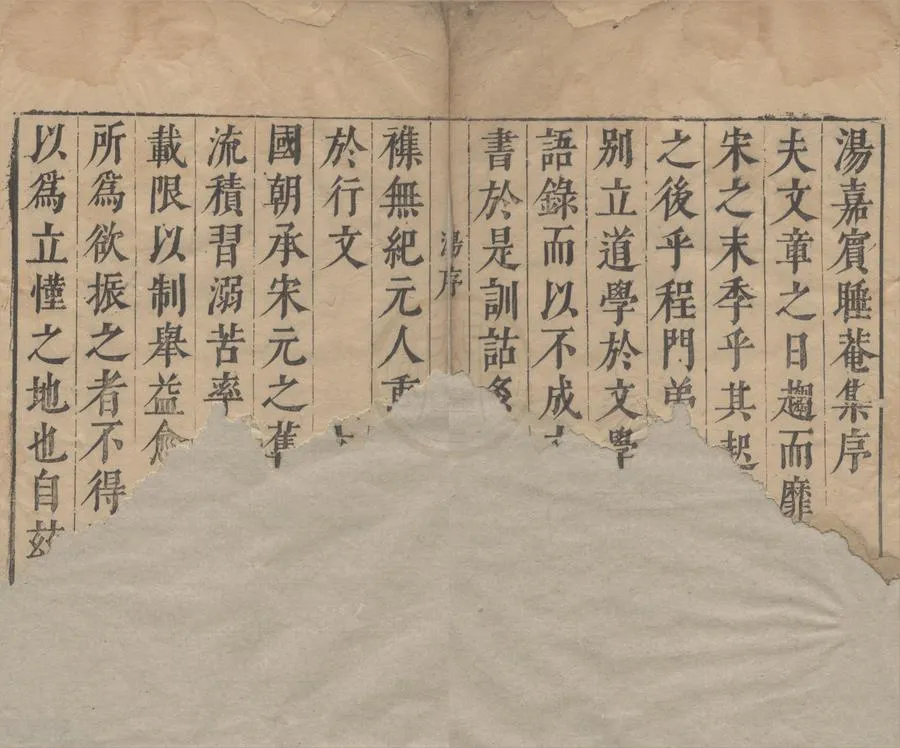 湯嘉賓睡菴集序
夫文章之日趨而靡
宋之末季乎其起
之後乎程門弟
別立道學於文學
語錄而以不成
書於是訓詁
湯序
襍無紀元人重
於行文
國朝承宋元之舊
流積習溺苦率
載限以制舉益愈
所爲欲振之者不得
以爲立慬之地也自玆